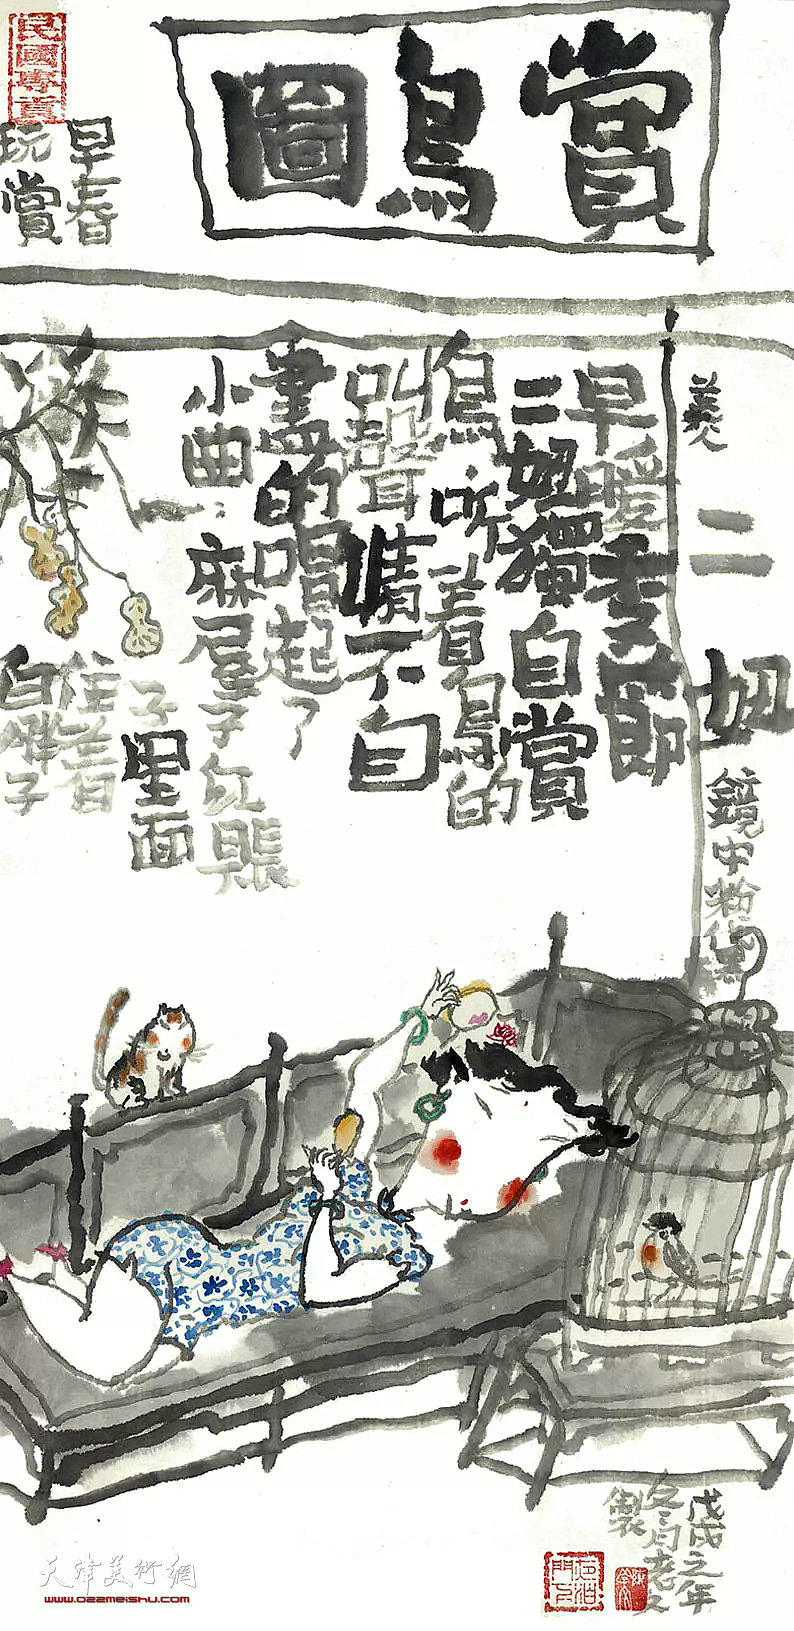 賞鳥圖
早春
玩賞
民國專賣
美人
二妞
鏡中粉黛
早暖季節
二妞獨自賞
鳥听着鳥的
叫聲情不自
盡的唱起了
小曲：麻屋子紅賬
子里面
住着
白胖子
戊戌之年
冬月老
製
天津美術網
www.022meishu.com